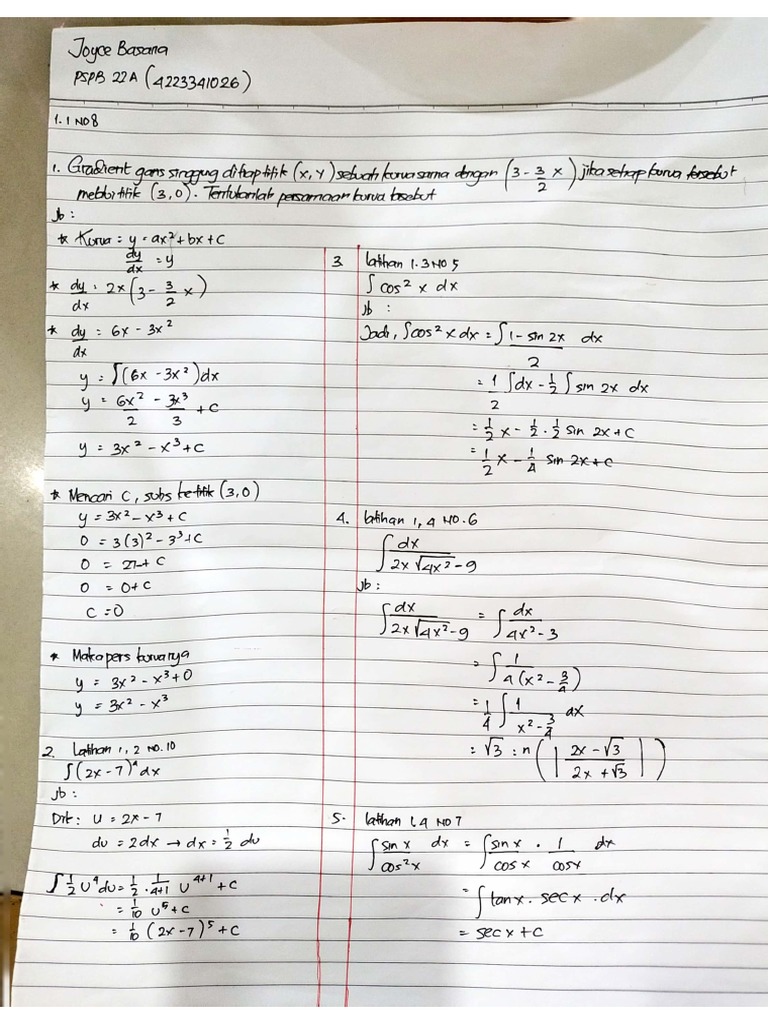 Joyce Basana
PSPB 22A (4223341026)
1.1 NO8
1. Gradient garis singgung ditiap titik (x,y) sebuah kurva sama dengan (3 - 3/2 x) jika setiap kurva tersebut
titik (3,0). Tentukanlah persamaan kurva tersebut
Jb :
* Kurva = y = ax² + bx + c
dy/dx = y
* dy/dx = 2x (3 - 3/2 x)
* dy/dx = 6x - 3x²
y = ∫(6x - 3x²)dx
y = 6x²/2 - 3x³/3 + c
y = 3x² - x³ + c
* Mencari C, subs ke titik (3,0)
y = 3x² - x³ + c
0 = 3(3)² - 3³ + c
0 = 27 + c
0 = 0 + c
C = 0
* Maka pers kurvanya
y = 3x² - x³ + 0
y = 3x² - x³
2. Latihan 1,2 NO.10
∫(2x - 7)⁴ dx
Jb :
Dit: U = 2x - 7
du = 2dx → dx = 1/2 du
∫ 1/2 U⁴ du = 1/2 · 1/4+1 U⁴⁺¹ + c
= 1/10 U⁵ + c
= 1/10 (2x - 7)⁵ + c
3. latihan 1.3 NO 5
∫ cos² x dx
Jb :
Jadi, ∫cos² x dx = ∫ 1 - sin 2x / 2 dx
= 1/2 ∫dx - 1/2 ∫ sin 2x dx
= 1/2 x - 1/2 · 1/2 sin 2x + c
= 1/2 x - 1/4 sin 2x + c
4. latihan 1,4 NO.6
∫ dx / 2x √4x² - 9
Jb :
∫ dx / 2x √4x² - 9 = ∫ dx / 4x² - 3
= ∫ 1 / 4(x² - 3/4)
= 1/4 ∫ 1 / x² - 3/4 dx
= √3 : n (| 2x - √3 / 2x + √3 |)
5. latihan 1.4 NO 7
∫ sin x / cos² x dx = ∫ sin x / cos x · 1 / cos x dx
= ∫ tan x · sec x · dx
= sec x + c